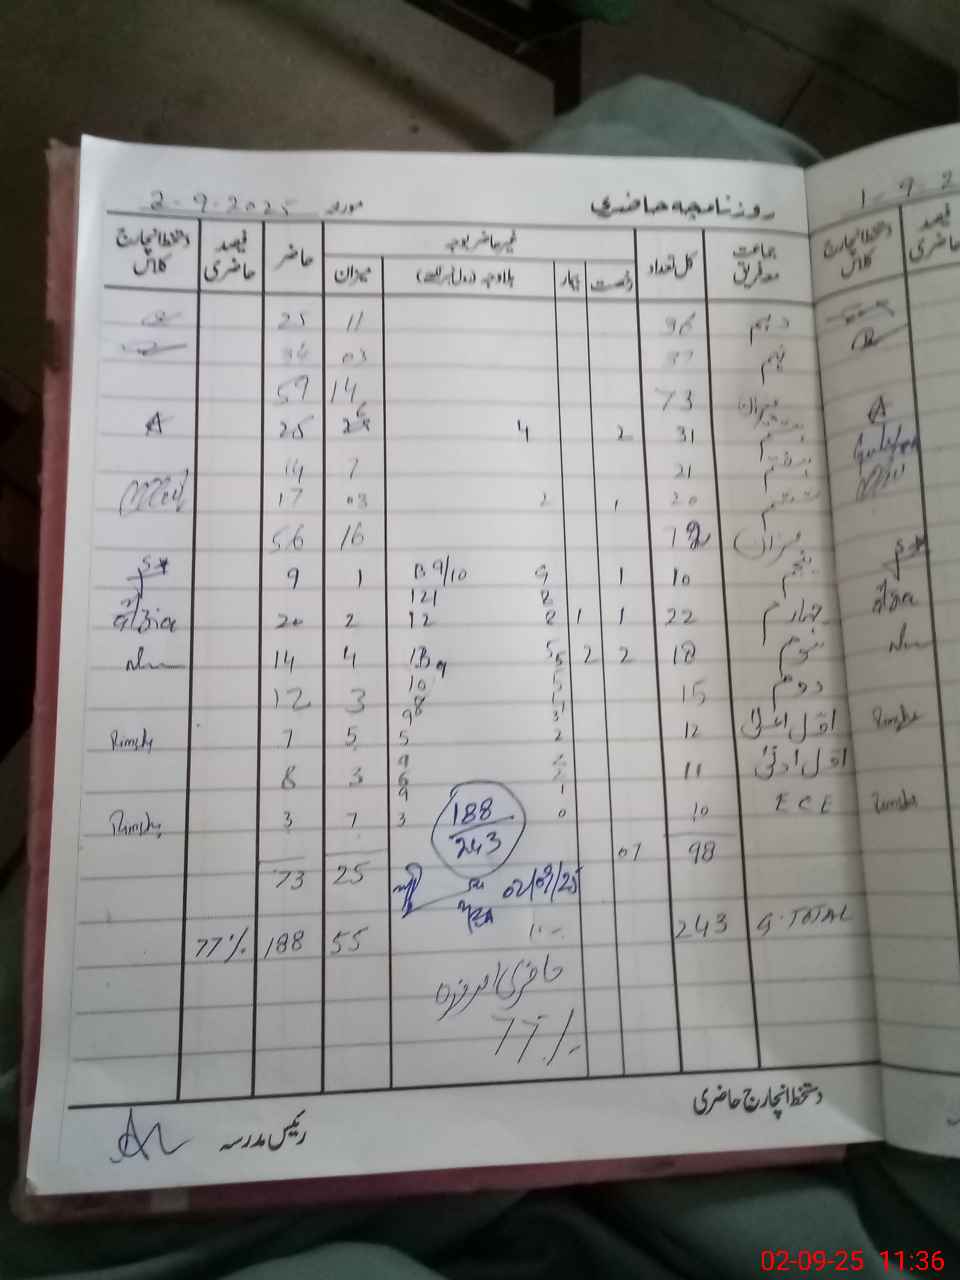 روزنامچہ حاضری مورخہ 2-9-2025
جماعت معہ فریق کل تعداد غیر حاضر بوجہ حاضر فیصد حاضری دستخط انچارج کلاس
رخصت بیمار بلاوجہ (رول نمبر لکھئے) میزان
دہم 36 11 25
نہم 37 03 34
میزان 73 14 59
ہشتم 31 2 4 6 25 A
ہفتم 21 7 14
ششم 20 1 2 03 17
میزان 72 16 56
پنجم 10 1 9 B 9/10 1 9
121
چہارم 22 1 1 8 12 2 20
سوم 18 2 2 5 13 4 14
10
دوم 15 8 3 12
اول اعلیٰ 12 2 5 5 7 Rimsha
اول ادنیٰ 11 6 3 8
ECE 10 0 3 7 3 Rimsha
188
243
98 07 25 73
02/09/25
G. TOTAL 243 55 188 77%
حاضری امروزہ
77%
دستخط انچارج حاضری
رئیس مدرسہ
1-9-2
فیصد حاضری دستخط انچارج کلاس
A
Rimsha
Rimsha
02-09-25 11:36